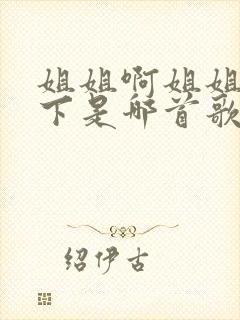 姐姐啊姐姐
下是哪首歌
绍伊古